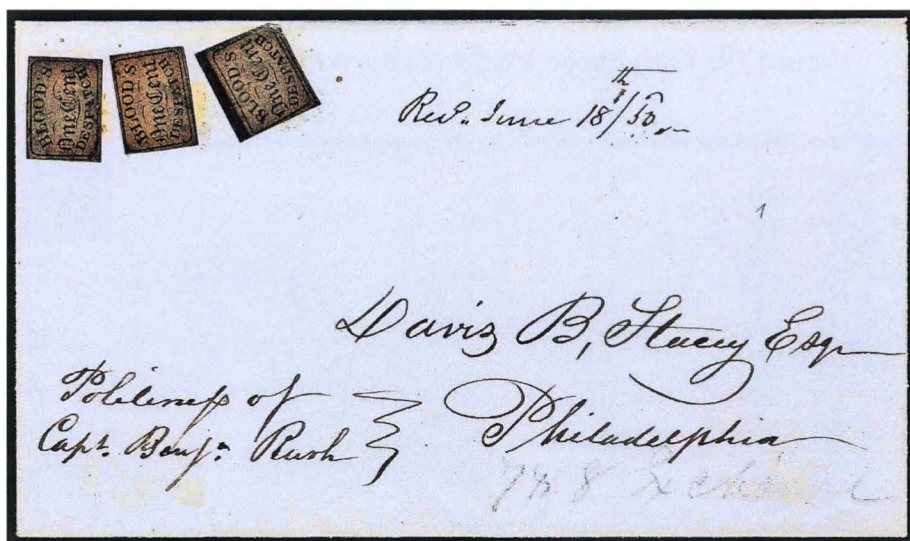 BLOOD'S
One Cent
DESPATCH
BLOOD'S
One Cent
DESPATCH
BLOOD'S
One Cent
DESPATCH
Recd. June 18th/50
1
Davis B, Stacey Esqr
Politeness of
Capt. Benjn. Rush
Philadelphia
7 & 8 Exchange